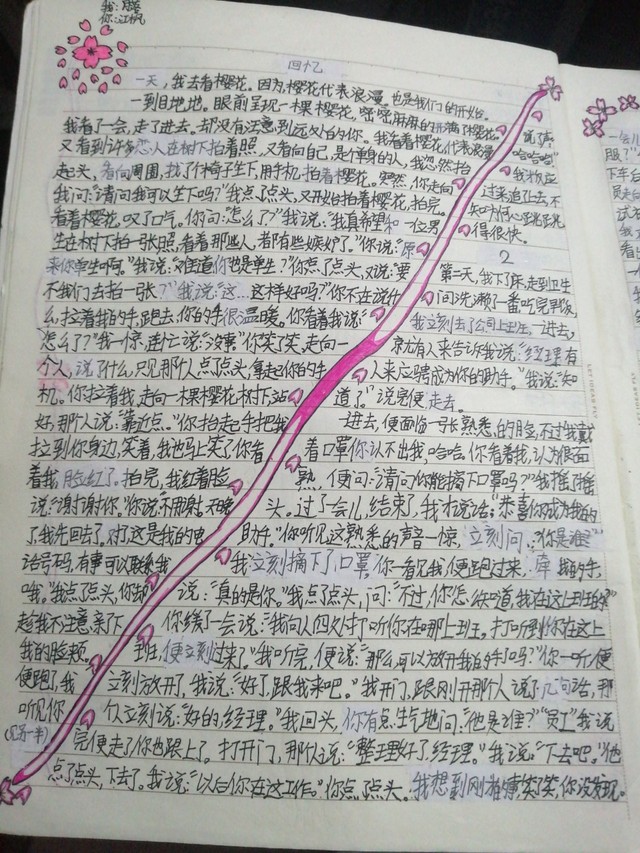 你:江枫
回忆
一天，我去看樱花。因为樱花代表浪漫。也是我们的开始。
一到目地地。眼前呈现一棵樱花，密密麻麻的开满了樱花。
我看了一会，走了进去。却没有注意到远处的你。我看着樱花代表浪漫
又看到许多恋人在树下拍着照，又看向自己，是个单身的人，我忽然抬
起头，看向周围，找了个椅子坐下，用手机拍着樱花。突然，你走向
我问:"请问我可以坐下吗?"我点了点头，又开始拍着樱花，拍完，
看着樱花。叹了口气。你问:"怎么了?"我说:"我真希望和一位男
生在树下拍一张照，看着那些人，都有些嫉妒了。"你说:"原
来你单生啊。"我说:"难道你也是单生?"你点了点头，又说:"要
不我们去拍一张?"我说:"这…这样好吗?"你不在说什
么，拉着我的手，跑去，你的手很温暖。你看着我说:"
怎么了?"我一惊，连忙说:"没事"你笑了笑，走向一
个人，说了什么，只见那个人点了点头，拿起你的手
机。你拉着我，走向一棵樱花树下，站
好，那个人说:"靠近点。"你抬起手把我
拉到你身边，笑着，我也马上笑了你看
着我，脸红了，拍完，我红着脸
说:"谢谢你。"你说:"不用谢，天晚
了，我先回去了，对了这是我的电
话号码，有事可以联系我
哦。"我点了点头，你却
趁我不注意，亲了下
我的脸颊。
便跑了，我
听见你
(见另一半)
说了声
"哈哈哈!"
过来追了上去，不
知为何心
得很快。
2
第二天，我下了床，走到卫生
间洗漱了一番，吃完早饭，
我立刻去了公司上班，一进去，
就有人来告诉我说:"经理，有
人来应聘成为你的助手。"我说:"知
道了。"说完便走去。
一进去，便面临一张熟悉的脸，不过我戴
着口罩你认不出我，哈哈，你看着我，认为很面
熟，便问:"请问你能摘下口罩吗?"我摇了摇
头。过了会儿，结束了，我才说话:"恭喜你成为我的
助手。"你听见这熟悉的声音一惊，立刻问:"你是谁?"
我立刻摘下了口罩，你一看见我，便跑过来，牵我的手，
说:"真的是你。"我点了点头，问:"不过，你怎么知道，我在这上班的?"
你绕了一会说:"我向人四处打听你在哪上班。打听到你在这上
班，便立刻过来了。"我听完，便说:"那么，可以放开我的手了吗?"你一听，便
立刻放开了，我说:"好了，跟我来吧。"我开门，跟刚开那个人说了几句话，那
个人立刻说:"好的，经理。"我回头，你有点生气地问:"他是谁?""员工"我说
完便走了你也跟上了。打开门，那个人说:"整理好了，经理。"我说:"下去吧。"他
点了点头，下去了。我说:"以后你在这工作。"你点了点头。我想到刚才，笑了笑，你没发现。